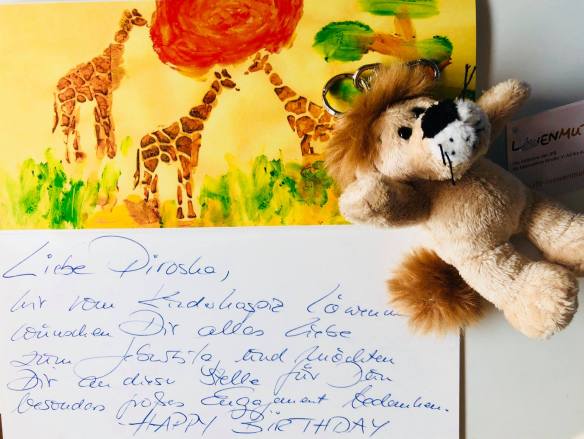 Liebe Diroska,
wir vom Kinderhospiz Löwenm
wünschen Dir alles Liebe
zum und möchten
Dir an dieser Stelle für Dein
besonders großes Engagement bedanken.
HAPPY BIRTHDAY
LÖWENMUT